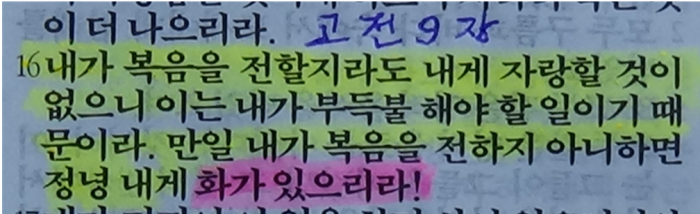 이 더 나으리라. 고전 9장
16 내가 복음을 전할지라도 내게 자랑할 것이
없으니 이는 내가 부득불 해야 할 일이기 때
문이라. 만일 내가 복음을 전하지 아니하면
정녕 내게 화가 있으리라!